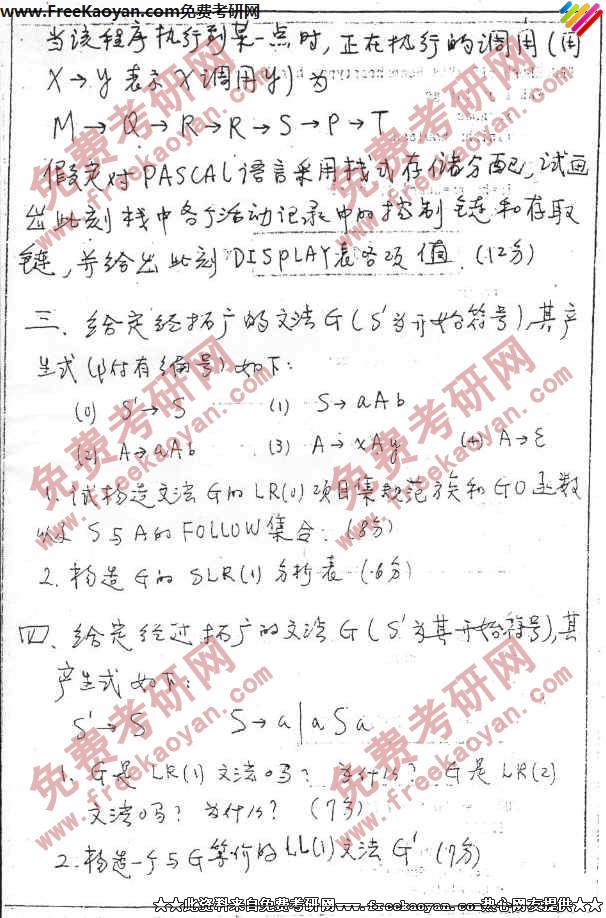 www.FreeKaoyan.com免费考研网
freekaoyan.com
当该程序执行到某一点时, 正在执行的调用(用
X→y 表示 X 调用 y) 为
M→Q→R→R→S→P→T
假定对PASCAL语言采用栈式存储分配, 试画
出此刻栈中各个活动记录中的控制链和存取
链, 并给出此刻DISPLAY表各项值. (12分)
三、给定经拓广的文法G(S'为开始符号), 其产
生式(中付有编号)如下:
(0) S'→S (1) S→aAb
(2) A→aAb (3) A→xAy (4) A→ε
1. 试构造文法G的LR(0)项目集规范族和GO函数
以及S与A的FOLLOW集合. (8分)
2. 构造G的SLR(1)分析表 (6分)
四、给定经过拓广的文法G(S'为其开始符号), 其
产生式如下:
S'→S S→a|aSa
1. G是LR(1)文法吗? 为什么? G是LR(2)
文法吗? 为什么? (7分)
2. 构造一个与G等价的LL(1)文法G' (7分)
免费考研网
www.freekaoyan.com
★★此资料来自免费考研网www.freekaoyan.com热心网友提供★★